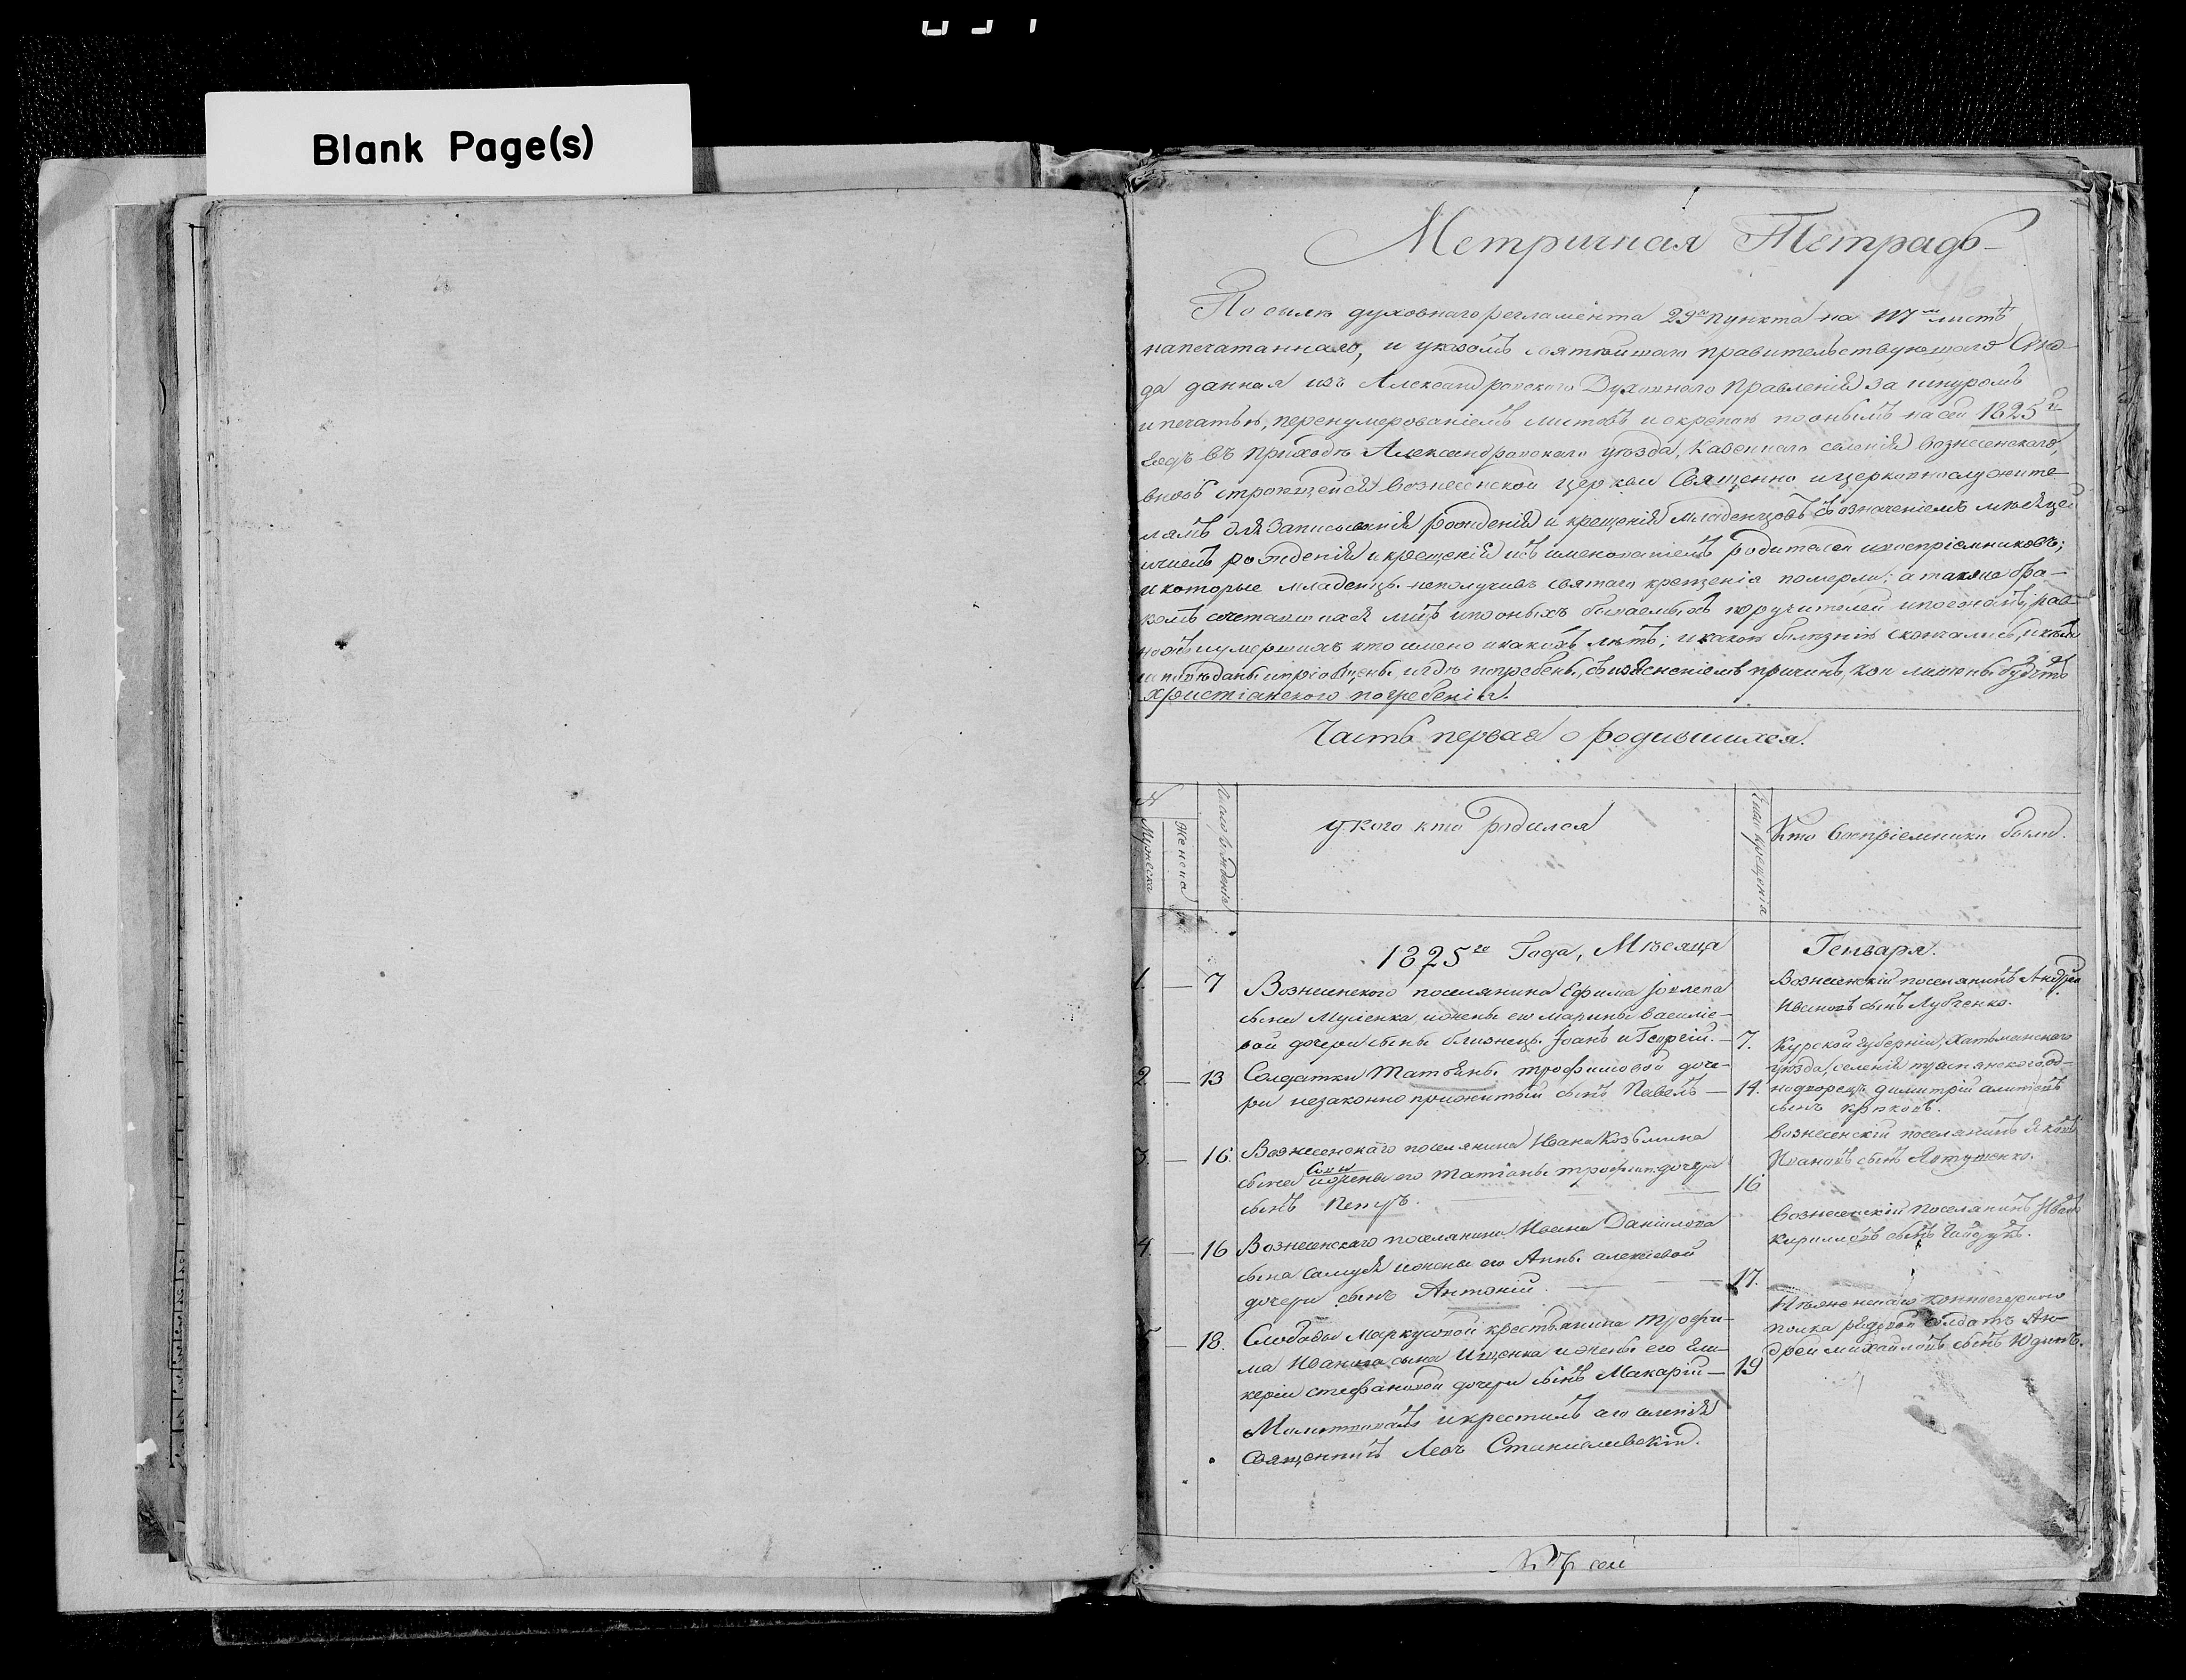 Blank Page(s)
Метричная Тетрадь
По силѣ духовнаго регламента 29го пункта на 117м листѣ
напечатаннаго, и указомъ святѣйшаго правительствующаго Сѵно-
да данная изъ Александровскаго Духовнаго Правленія за шнуромъ
и печатью, перенумерованіемъ листовъ и скрепою по онымъ на сей 1825й
годъ въ приходъ Александровскаго уѣзда, казеннаго селенія Вознесенскаго,
вновь строющейся Вознесенской церкви Священно и церковнослужите-
лямъ для записыванія рожденія и крещенія младенцовъ съ означеніемъ мѣсяцей
и чиселъ рожденія и крещенія и съ именованіемъ родителей и воспріемниковъ;
и которые младенцы неполучивъ святаго крещенія померли; а также бра-
комъ сочетавшихся лицъ и по оныхъ бываемыхъ поручителей и поезжанъ, рав-
но и умершихъ кто имено и какихъ лѣтъ; и какою болезнію скончались, и кѣмъ
исповѣданы и пріобщены и гдѣ погребены, съ изъясненіемъ причинъ, кои лишены будутъ
христіанского погребенія.
Часть первая о родившихся.
№
Мужеска
Женска
Число рожденія
У кого кто родился
Число крещенія
Кто воспріемники были.
1825го Года, Мѣсяца Генваря.
1. — 7 Вознесенского поселянина Ефима Іовлева
сына Муленка и жены его Марины Василіе-
вой дочери сыны близнецы Іоанъ и Георгій. — 7.
Вознесенскій поселянинъ Андрей
Ивановъ сынъ Лубченко.
2. — 13 Солдатки Татьяны Трофимовой доче-
ри незаконно прижитый сынъ Павелъ — 14.
Курской губерніи, Хатмыжского
уѣзда, селенія од-
нодворецъ Димитрій
сынъ Крюковъ.
3. — 16. Вознесенскаго поселянина Ивана Козьмина
сына и жены его Татіаны Трофим: дочери
сынъ Петръ. — 16
Вознесенскій поселянинъ Яковъ
Ивановъ сынъ Явтушенко.
4. — 16 Вознесенскаго поселянина Ивана Даніилова
сына Самуся и жены его Анны Алексѣевой
дочери сынъ Антоній. — 17.
Вознесенскій поселянинъ Иванъ
Кирилловъ сынъ Гайдукъ.
5 — 18. Слободы Маркусовой крестьянина Трофи-
ма Иванова сына Ищенка и жены его Гли-
керіи Стефановой дочери сынъ Макарій — 19
конноегерского
полка рядовой солдатъ Ан-
дрей Михайловъ сынъ Юдинъ.
Молитвовалъ и крестилъ его селенія
Священникъ Левъ Станиславскій.